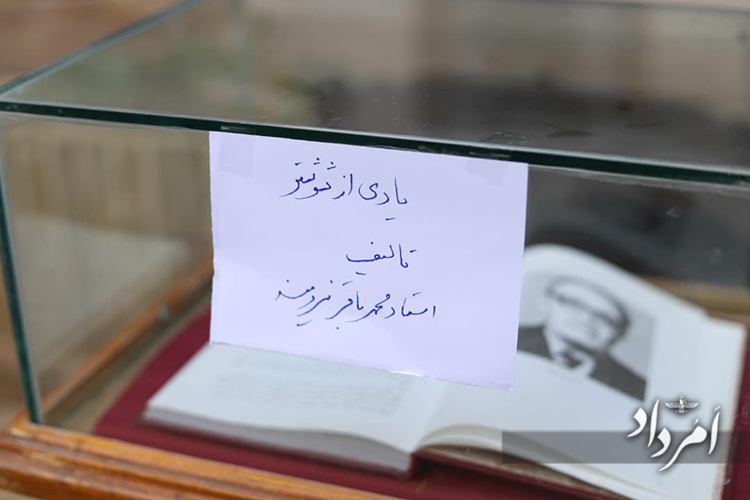 یادی از شوشتر
تالیف
استاد محمد باقر نیرومند
اَمُرداد